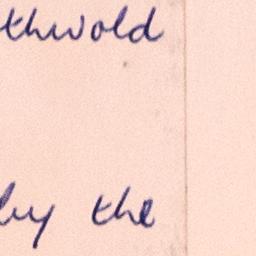 thwold
by the